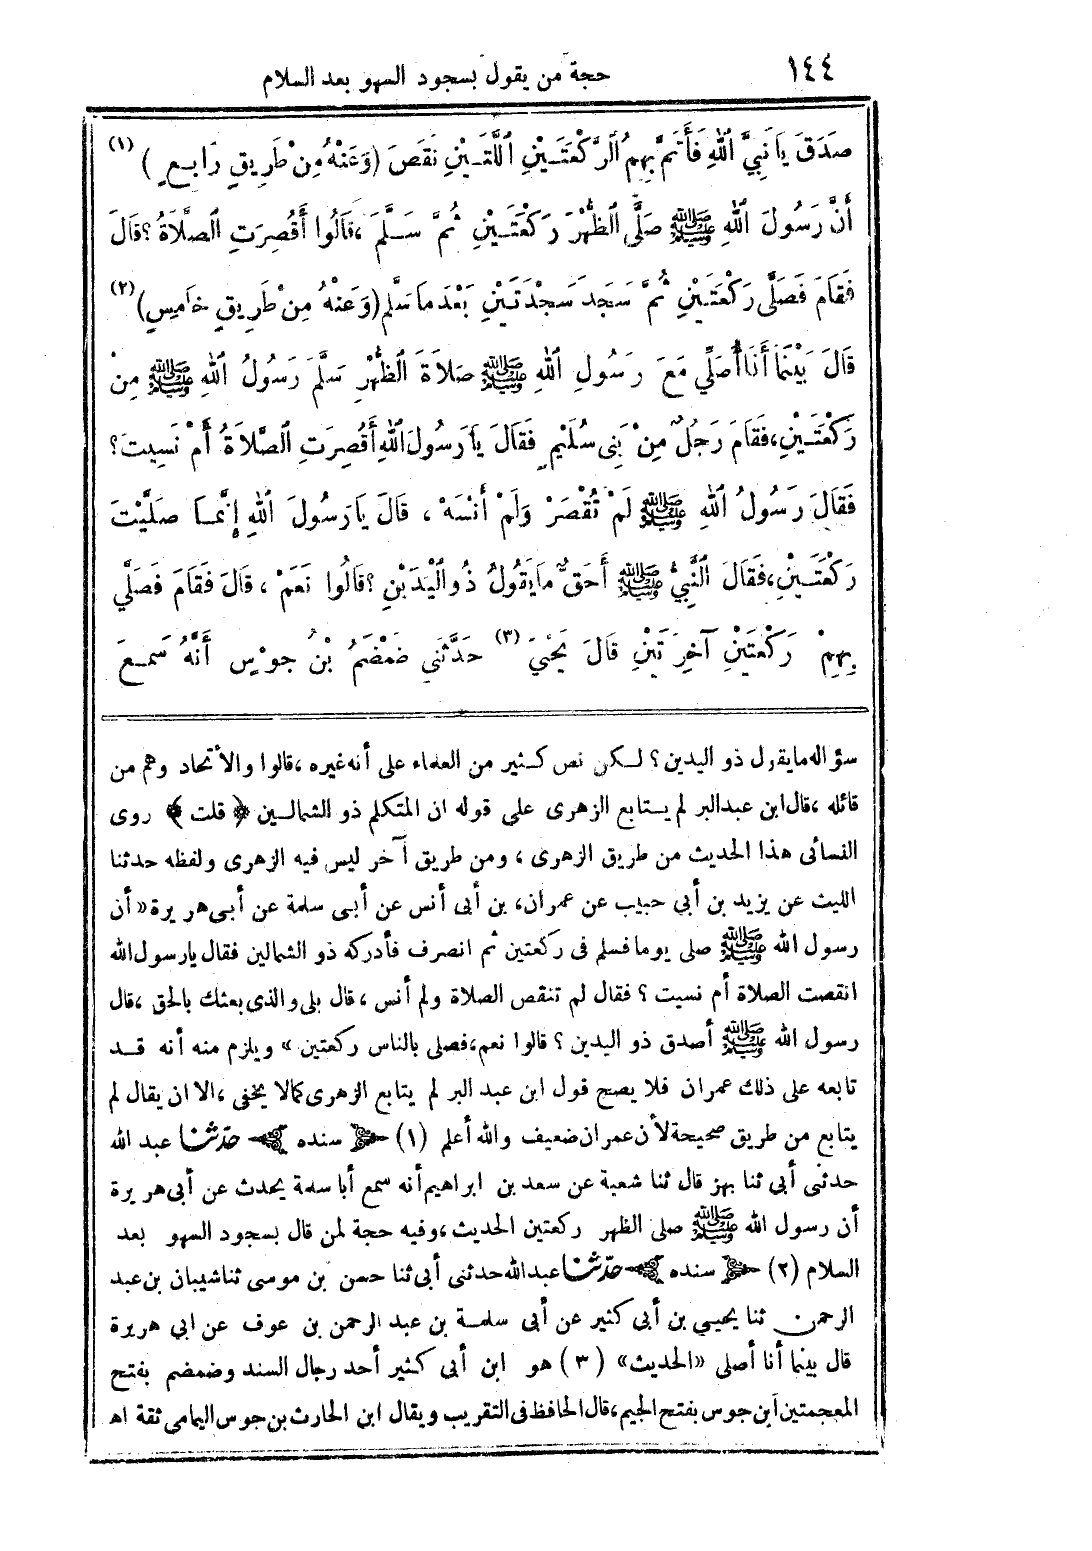 ١٤٤ حجة من يقول بسجود السهو بعد السلام
صَدَقَ يَا نَبِيَّ ٱللهِ فَأَتَمَّ بِهِمُ ٱلرَّكْعَتَيْنِ ٱللَّتَيْنِ نَقَصَ (وَعَنْهُ مِنْ طَرِيقٍ رَابِعٍ) (١)
أَنَّ رَسُولَ ٱللهِ ﷺ صَلَّى ٱلظُّهْرَ رَكْعَتَيْنِ ثُمَّ سَلَّمَ ، فَالُوا أَقُصِرَتِ ٱلصَّلَاةُ؟ قَالَ
فَقَامَ فَصَلَّى رَكْعَتَيْنِ ثُمَّ سَجَدَ سَجْدَتَيْنِ بَعْدَ مَا سَلَّمَ (وَعَنْهُ مِنْ طَرِيقٍ خَامِسٍ) (٢)
قَالَ بَيْنَمَا أَنَا أُصَلِّي مَعَ رَسُولِ ٱللهِ ﷺ صَلَاةَ ٱلظُّهْرِ سَلَّمَ رَسُولُ ٱللهِ ﷺ مِنْ
رَكْعَتَيْنِ، فَقَامَ رَجُلٌ مِنْ بَنِى سُلَيْمٍ فَقَالَ يَا رَسُولَ ٱللهِ أَقُصِرَتِ ٱلصَّلَاةُ أَمْ نَسِيتَ؟
فَقَالَ رَسُولُ ٱللهِ ﷺ لَمْ تُقْصَرْ وَلَمْ أَنْسَهْ ، قَالَ يَا رَسُولَ ٱللهِ إِنَّمَا صَلَّيْتَ
رَكْعَتَيْنِ، فَقَالَ ٱلنَّبِيُّ ﷺ أَحَقٌّ مَا يَقُولُ ذُو ٱلْيَدَيْنِ؟ قَالُوا نَعَمْ ، قَالَ فَقَامَ فَصَلَّى
بِهِمْ رَكْعَتَيْنِ آخِرَتَيْنِ قَالَ يَحْيَى (٣) حَدَّثَنِى ضَمْضَمُ بْنُ جَوْسٍ أَنَّهُ سَمِعَ
سؤاله ما يقول ذو اليدين؟ لكن نص كثير من العلماء على أنه غيره ، قالوا والأتحاد وهم من
قائله ، قال ابن عبد البر لم يتابع الزهرى على قوله ان المتكلم ذو الشمالين ﴿ قلت ﴾ روى
النسائى هذا الحديث من طريق الزهرى ، ومن طريق آخر ليس فيه الزهرى ولفظه حدثنا
الليث عن يزيد بن أبي حبيب عن عمران، بن أبى أنس عن أبى سلمة عن أبى هريرة «أن
رسول الله ﷺ صلى يوما فسلم فى ركعتين ثم انصرف فأدركه ذو الشمالين فقال يارسول الله
انقصت الصلاة أم نسيت ؟ فقال لم تنقص الصلاة ولم أنس ، قال بلى والذى بعثك بالحق ، قال
رسول الله ﷺ أصدق ذو اليدين ؟ قالوا نعم، فصلى بالناس ركعتين » ويلزم منه أنه قد
تابعه على ذلك عمران فلا يصح قول ابن عبد البر لم يتابع الزهرى كمالا يخفى ، الا ان يقال لم
يتابع من طريق صحيحة لأن عمران ضعيف والله أعلم (١) ﴿ سنده ﴾ حدّثنا عبد الله
حدثنى أبي ثنا بهز قال ثنا شعبة عن سعد بن ابراهيم أنه سمع أبا سلمة يحدث عن أبى هريرة
أن رسول الله ﷺ صلى الظهر ركعتين الحديث ، وفيه حجة لمن قال بسجود السهو بعد
السلام (٢) ﴿ سنده ﴾ حدّثنا عبد الله حدثنى أبى ثنا حسن بن موسى ثنا شيبان بن عبد
الرحمن ثنا يحيى بن أبى كثير عن أبى سلمة بن عبد الرحمن بن عوف عن ابي هريرة
قال بينما أنا أصلى «الحديث» (٣) هو ابن أبي كثير أحد رجال السند وضمضم بفتح
المعجمتين ابن جوس بفتح الجيم ، قال الحافظ فى التقريب ويقال ابن الحارث بن جوس اليمامى ثقة اه